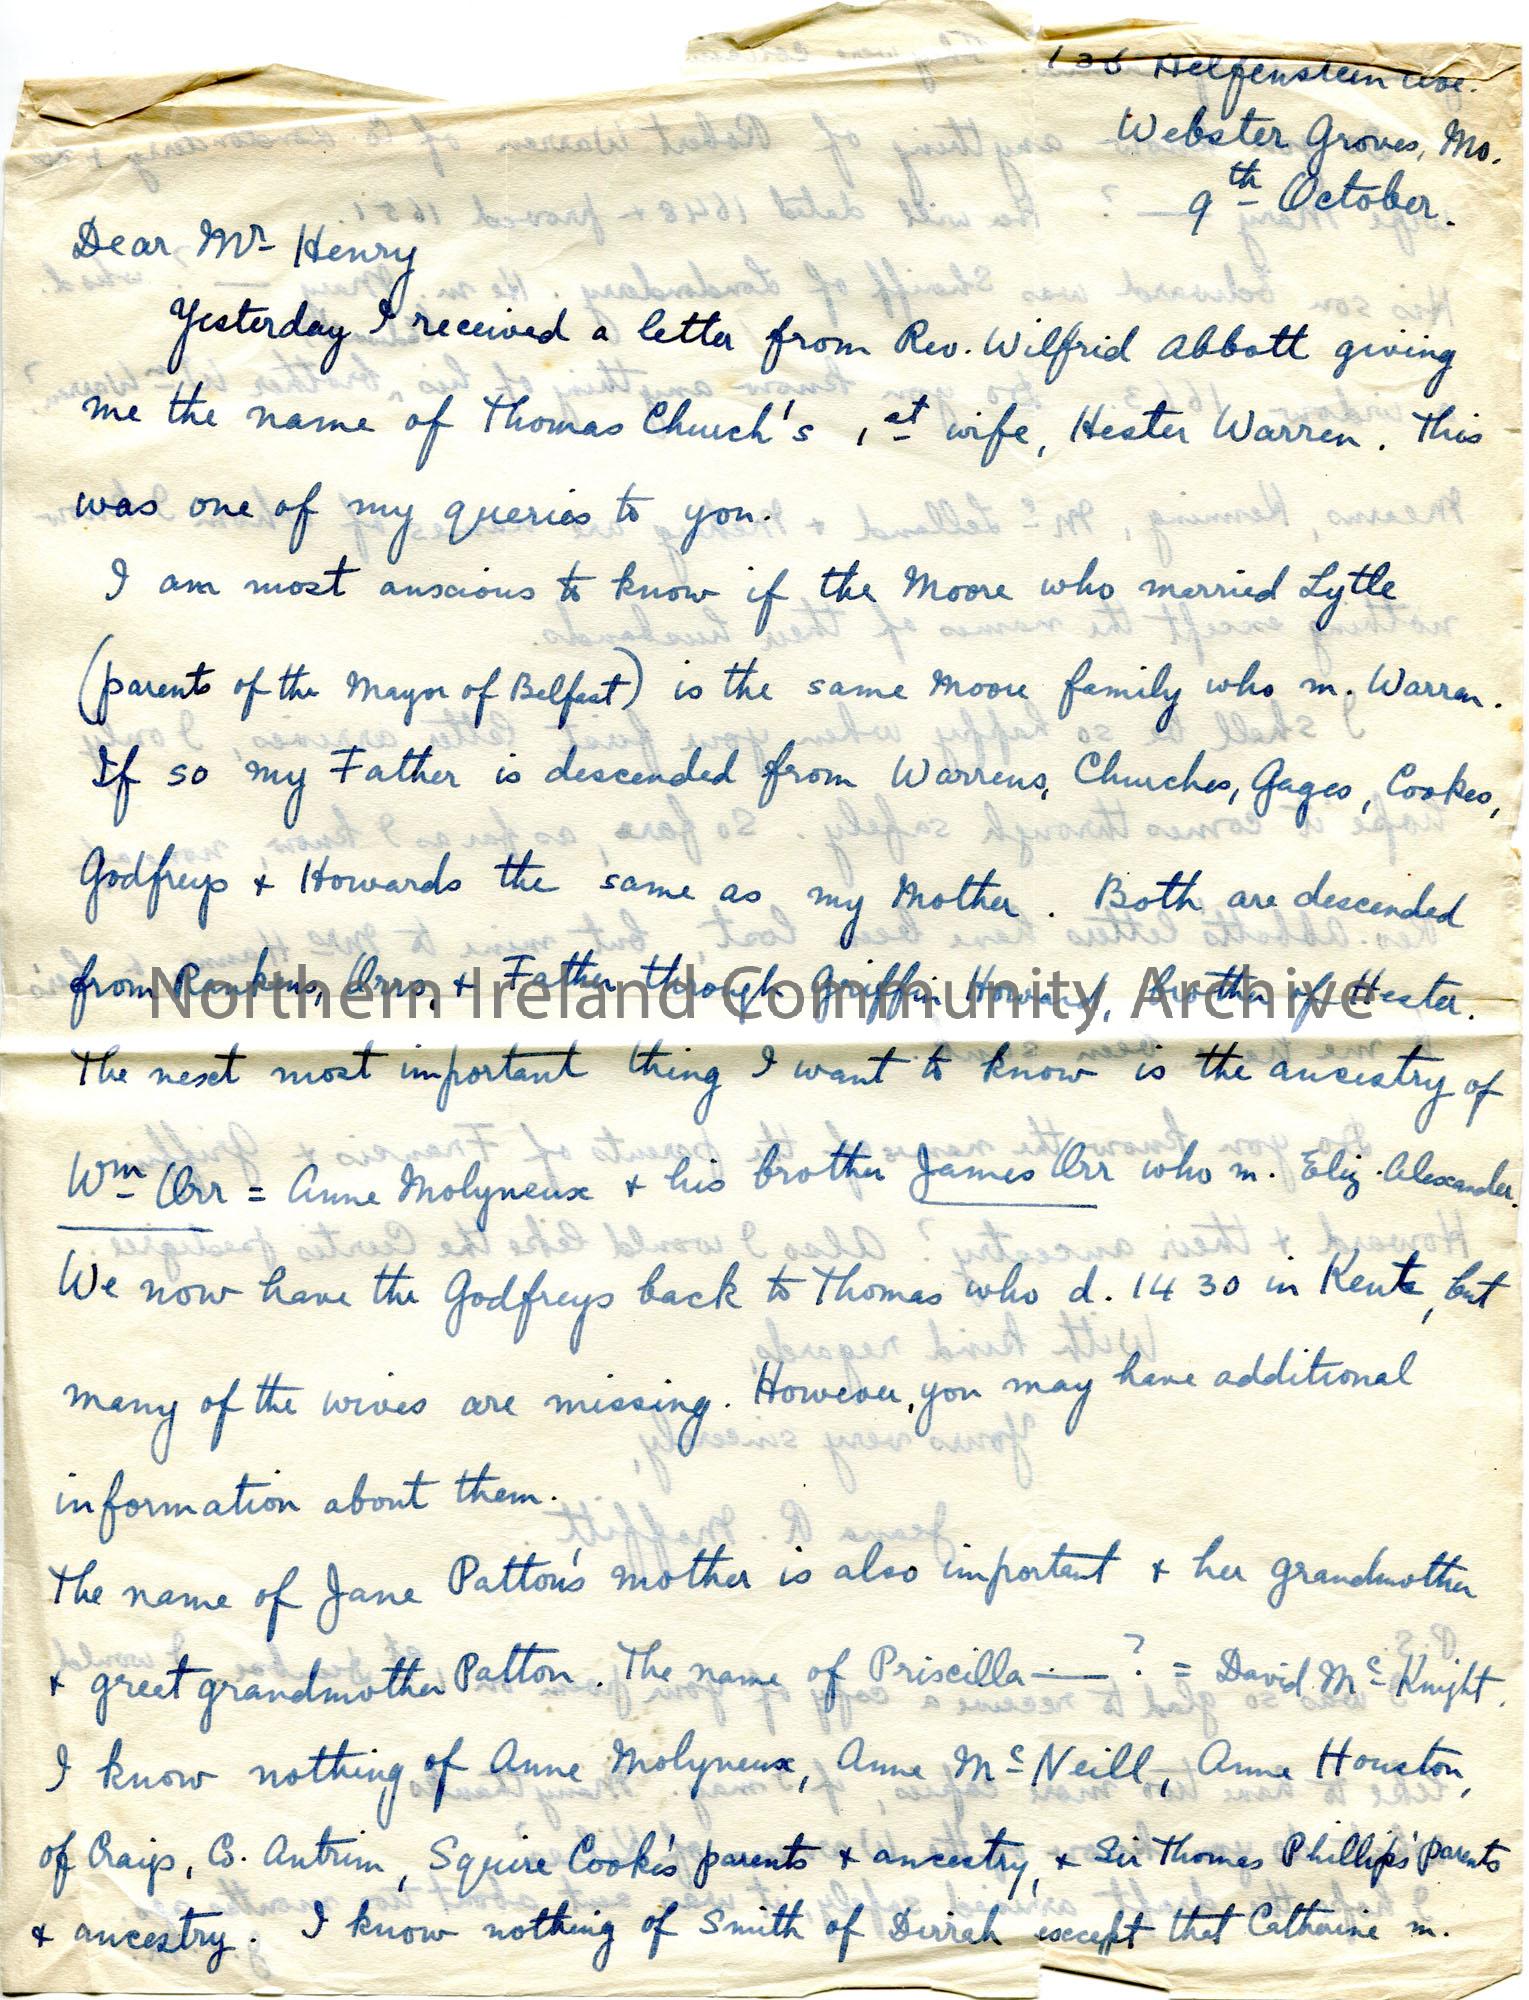 136 Helfenstein Ave.
Webster Groves, Mo.
9th October.
Dear Mr Henry
Yesterday I received a letter from Rev. Wilfrid Abbott giving
me the name of Thomas Church's 1st wife, Hester Warren. This
was one of my queries to you.
I am most anxious to know if the Moore who married Lytle
(parents of the Mayor of Belfast) is the same Moore family who m. Warren.
If so my Father is descended from Warrens, Churches, Gages, Cookes,
Godfreys + Howards the same as my Mother. Both are descended
from Rankens, Orrs, + Father through Griffin Howard, brother of Hester.
Northern Ireland Community Archive
The next most important thing I want to know is the ancestry of
Wm Orr = Anne Molyneux + his brother James Orr who m. Eliz. Alexander.
We now have the Godfreys back to Thomas who d. 1430 in Kent, but
many of the wives are missing. However, you may have additional
information about them.
The name of Jane Patton's mother is also important + her grandmother
+ great grandmother Patton. The name of Priscilla —— ? = David Mc Knight.
I know nothing of Anne Molyneux, Anne Mc Neill, Anne Houston,
of Craigs, Co. Antrim, Squire Cooke's parents + ancestry, + Sir Thomas Phillips' parents
+ ancestry. I know nothing of Smith of Dirrah except that Catherine m.